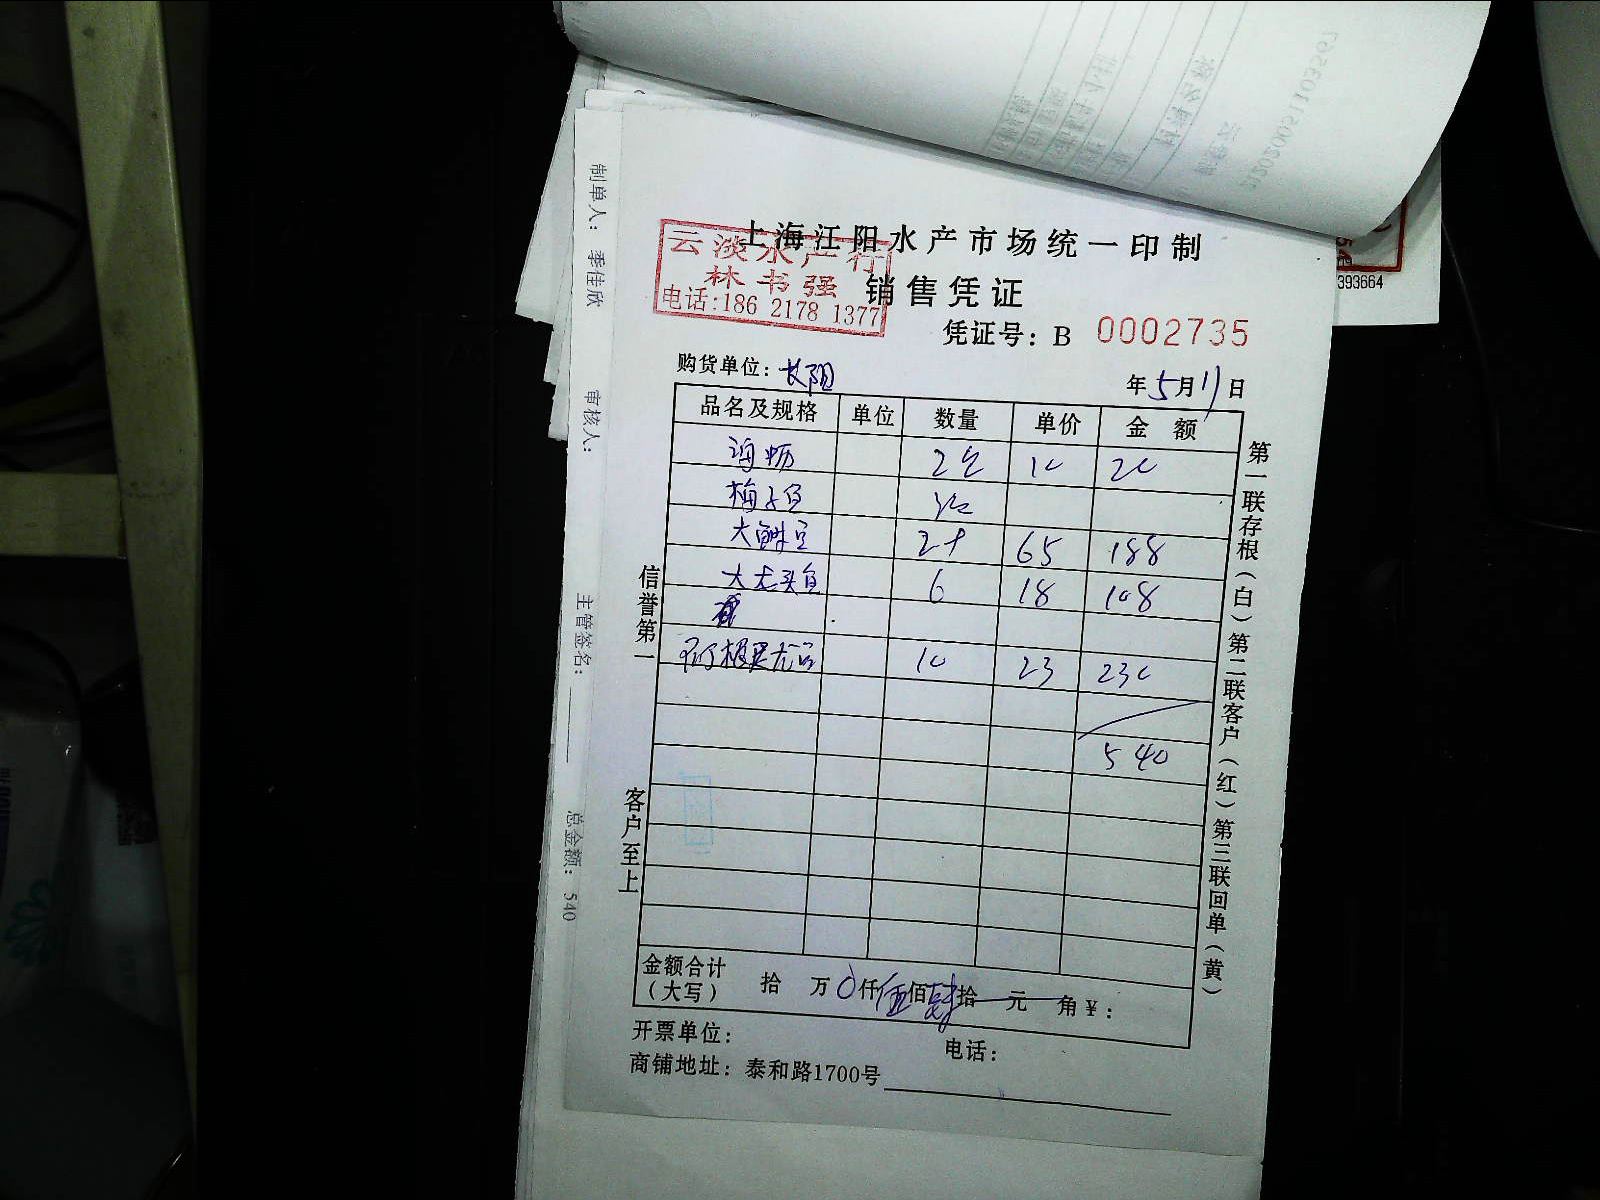 上海江阳水产市场统一印制
云淡水产行
林书强
电话:186 2178 1377
销售凭证
凭证号: B 0002735
购货单位: 长阳
年 5 月 11 日
品名及规格 单位 数量 单价 金额
海蛎 2 10 20
梅子鱼
大 65 188
大龙头鱼 6 18 108
10 23 230
540
金额合计（大写） 拾 万 0 仟 伍 佰 肆 拾 元 角 ¥:
开票单位: 电话:
商铺地址: 泰和路1700号
信誉第一
客户至上
第一联存根（白）第二联客户（红）第三联回单（黄）
制单人: 季佳欣
审核人:
主管签名:
总金额: 540
393664
2120200511103567